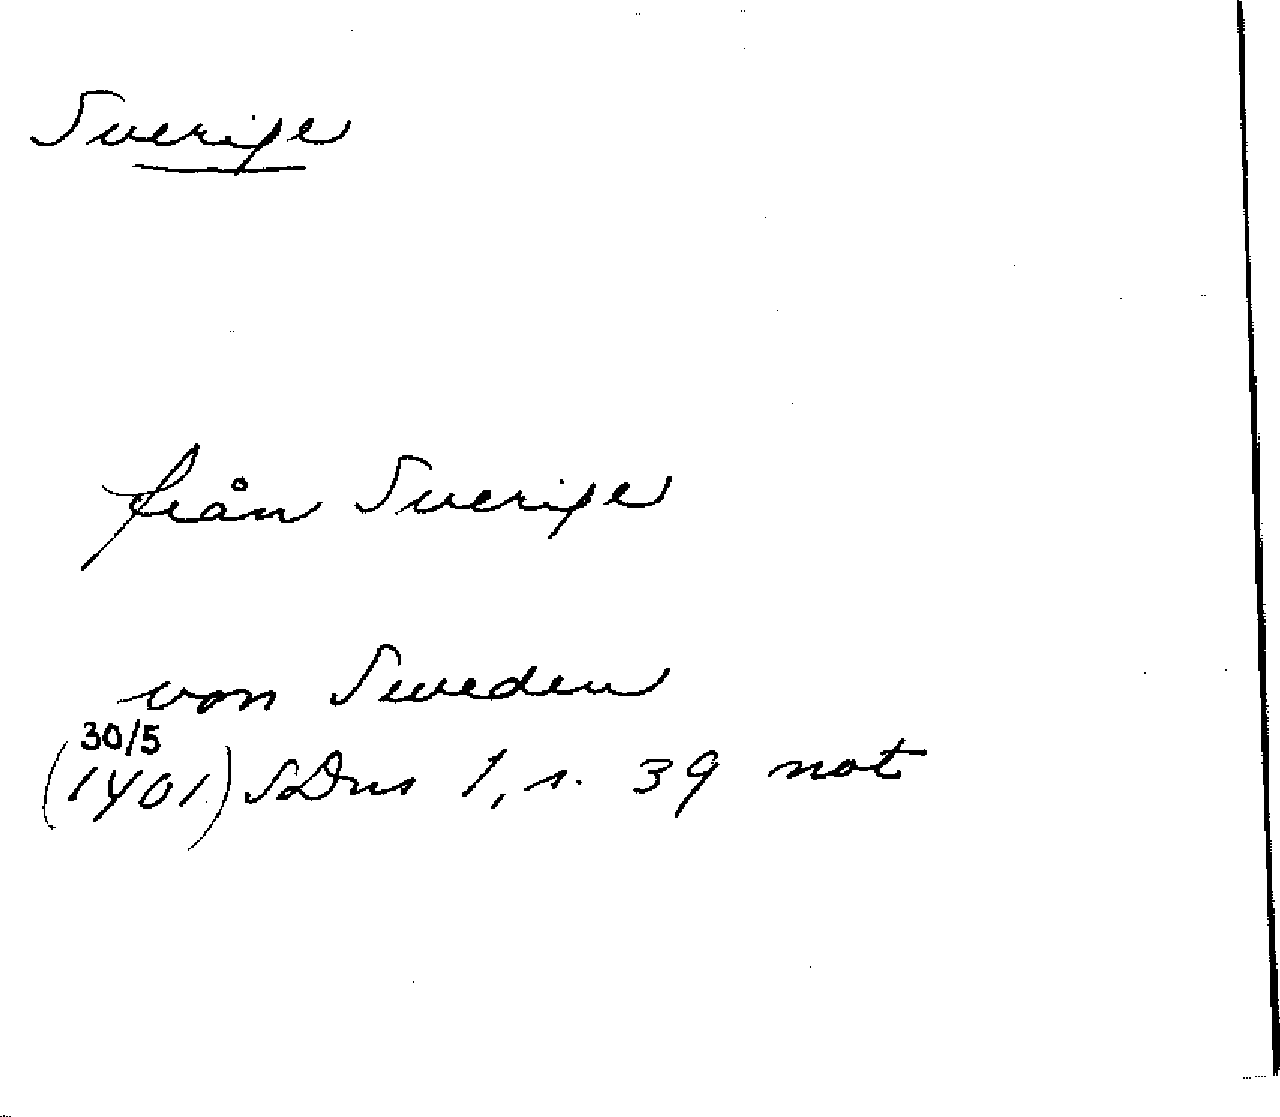 Sverige
från Sverige
von Sweden
30/5
(1401) SDns 1, s. 39 not